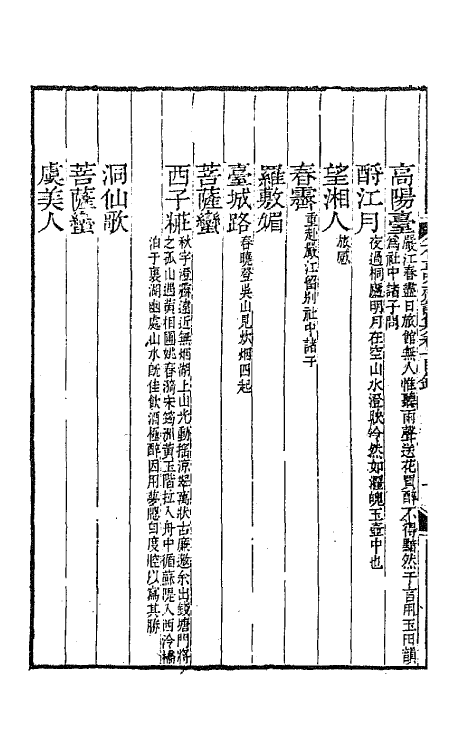 高陽臺 嚴江春盡日旅館無人惟聽雨聲送花買醉不得黯然于言用玉田韻
為社中諸子問
酹江月 夜過桐廬明月在空山水澄映泠然如濯魄玉壺中也
望湘人 旅感
春霽 重赴嚴江留別社中諸子
羅敷媚
臺城路 春曉登吳山見炊烟四起
菩薩蠻
西子粧 秋字澄霽遠近無烟湖上山光動搖涼翠萬狀古廉邀余出錢塘門將
之孤山遇黃相圃姚春漪宋筠洲黃玉階拉入舟中循蘇隄入西泠橋
泊于裏湖幽處山水旣佳飲酒極醉因用夢窗自度腔以寫其勝
洞仙歌
菩薩蠻
虞美人